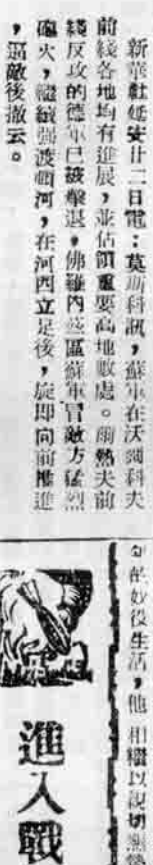 新華社延安廿二日電:莫斯科訊,蘇軍在沃爾科夫
前綫各地均有進展,並佔領重要高地數處。爾熱夫前
綫反攻的德軍已被擊退,佛羅內茲區蘇軍冒敵方猛烈
砲火,繼續强渡頓河,在河西立足後,旋即向前推進
,逼敵後撤云。
的奴役生活,他相繼以親切
進入戰